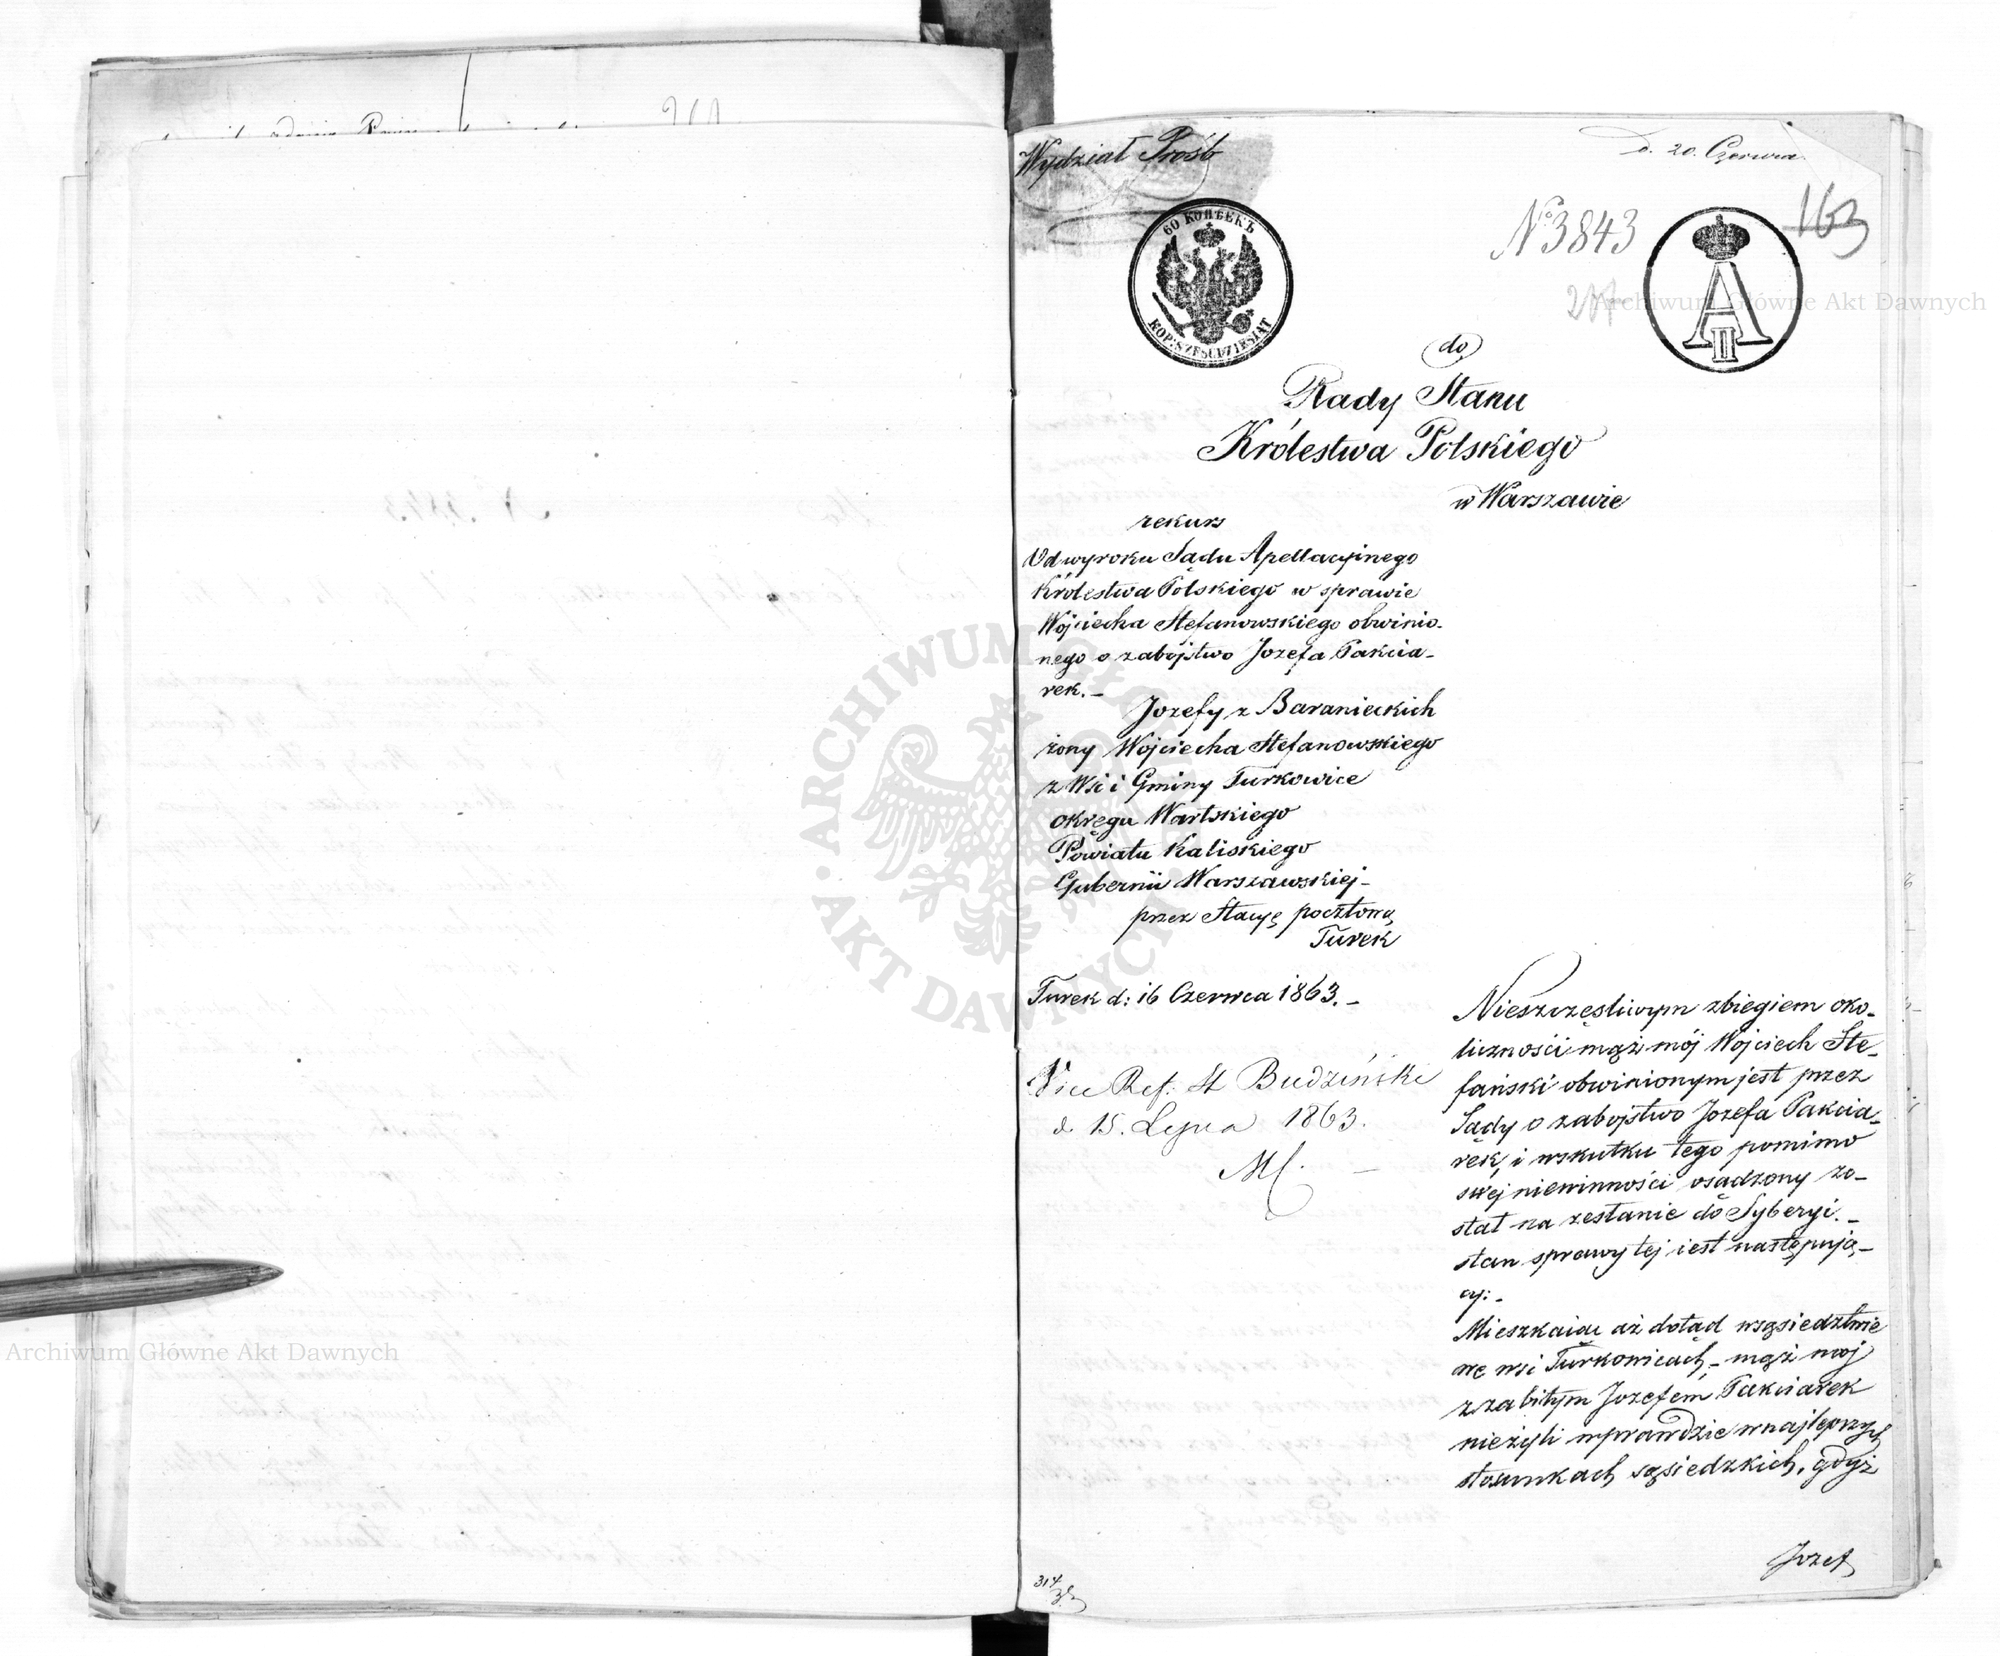 Wydział Próśb
d. 20. Czerwca
163
№ 3843
60 КОПѢЕКЪ
KOP: SZEŚĆDZIESIĄT
A II
do
Rady Stanu
Królestwa Polskiego
w Warszawie
rekurs
Od wyroku Sądu Apellacyinego
Królestwa Polskiego w sprawie
Wojciecha Stefanowskiego obwinio-
nego o zabójstwo Jozefa Pakcia-
rek.-
Jozefy z Baranieckich
żony Wojciecha Stefanowskiego
z Wsi i Gminy Turkowice
okręgu Wartskiego
Powiatu Kaliskiego
Gubernii Warszawskiej-
przez Stacyę pocztową
Turek
Turek d: 16 Czerwca 1863.-
Vice Ref. St Budziński
d. 15. Lipca 1863.
Nieszczęśliwym zbiegiem oko-
liczności mąż mój Wojciech Ste-
fański obwinionym jest przez
Sądy o zabojstwo Jozefa Pakcia-
rek, i wskutku tego pomimo
swej niewinności osądzony zo-
stał na zesłanie do Syberyi.-
stan sprawy tej iest następują-
cy:-
Mieszkaiąc aż dotąd wsąsiedztwie
we wsi Turkowicach,- mąż moj
z zabitym Jozefem Pakciarek
nieżyli wprawdzie wnajlepszych
stosunkach sąsiedzkich, gdyż
Jozef
314
Archiwum Główne Akt Dawnych
Archiwum Główne Akt Dawnych
ARCHIWUM GŁÓWNE AKT DAWNYCH